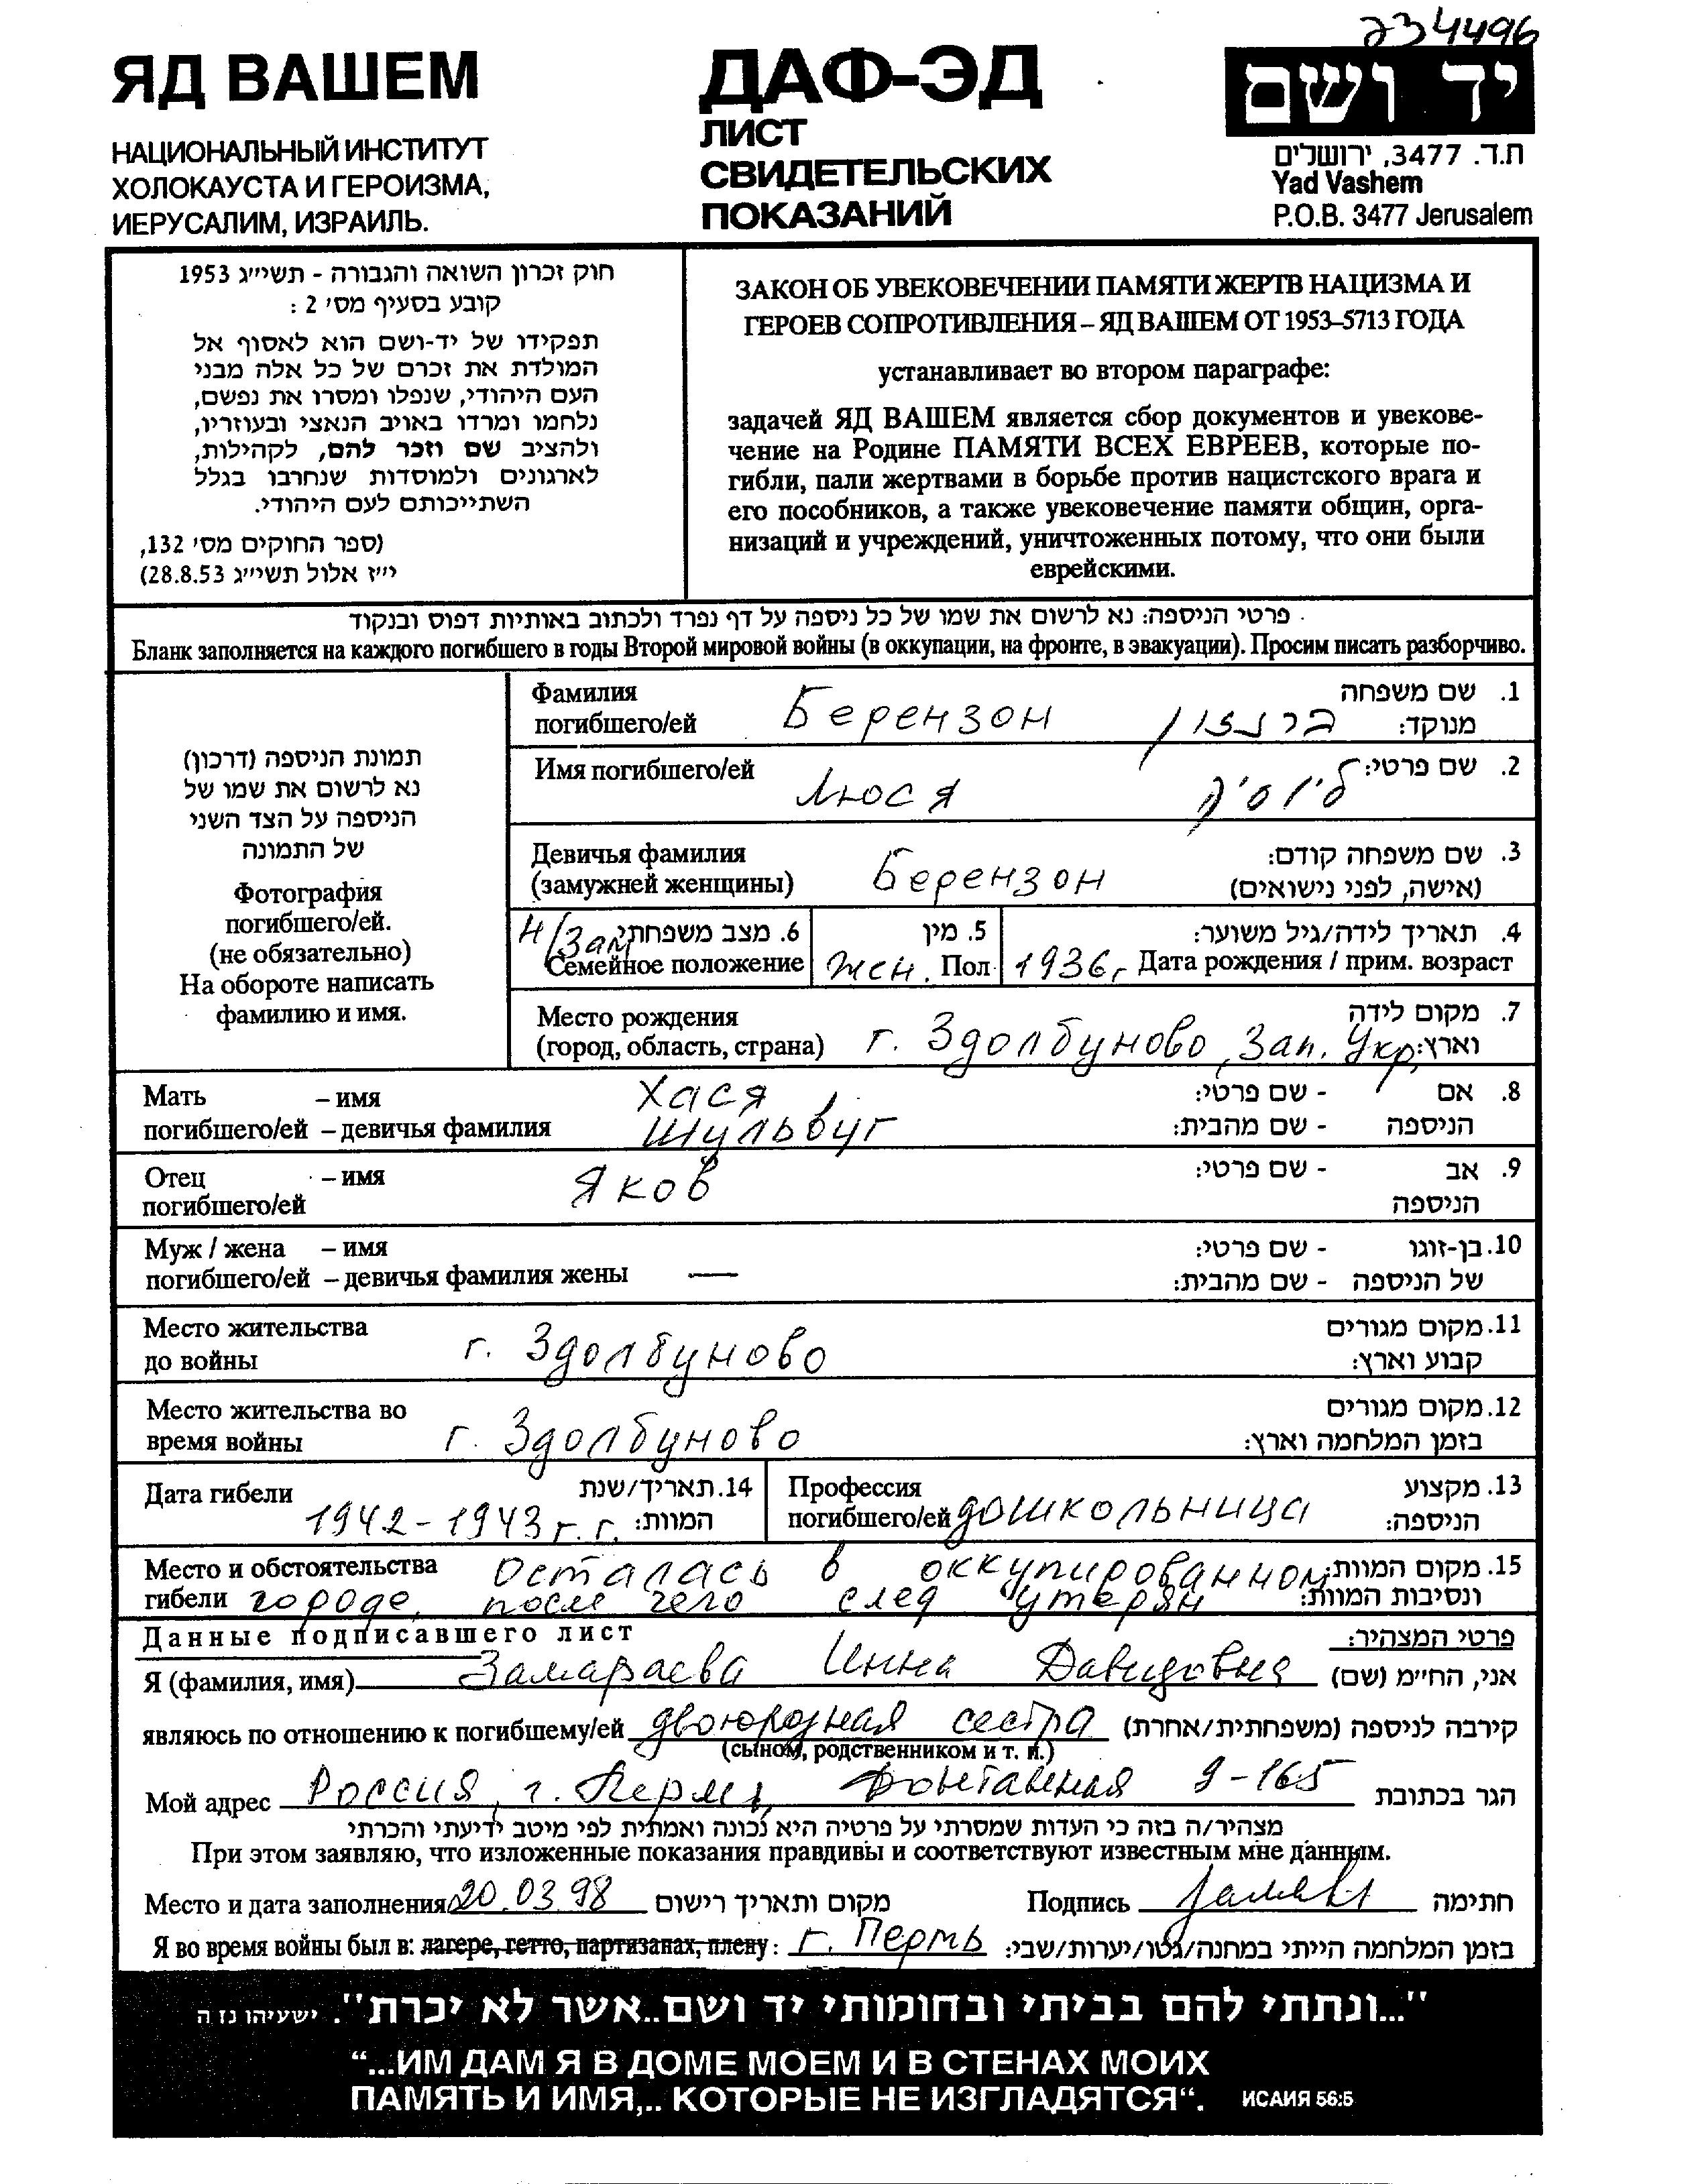 234496
ЯД ВАШЕМ
НАЦИОНАЛЬНЫЙ ИНСТИТУТ
ХОЛОКАУСТА И ГЕРОИЗМА,
ИЕРУСАЛИМ, ИЗРАИЛЬ.
ДАФ-ЭД
ЛИСТ
СВИДЕТЕЛЬСКИХ
ПОКАЗАНИЙ
יד ושם
ת.ד. 3477, ירושלים
Yad Vashem
P.O.B. 3477 Jerusalem
חוק זכרון השואה והגבורה - תשי״ג 1953
קובע בסעיף מס׳ 2 :
תפקידו של יד-ושם הוא לאסוף אל
המולדת את זכרם של כל אלה מבני
העם היהודי, שנפלו ומסרו את נפשם,
נלחמו ומרדו באויב הנאצי ובעוזריו,
ולהציב שם וזכר להם, לקהילות,
לארגונים ולמוסדות שנחרבו בגלל
השתייכותם לעם היהודי.
(ספר החוקים מס׳ 132,
י״ז אלול תשי״ג 28.8.53)
ЗАКОН ОБ УВЕКОВЕЧЕНИИ ПАМЯТИ ЖЕРТВ НАЦИЗМА И
ГЕРОЕВ СОПРОТИВЛЕНИЯ – ЯД ВАШЕМ ОТ 1953–5713 ГОДА
устанавливает во втором параграфе:
задачей ЯД ВАШЕМ является сбор документов и увекове-
чение на Родине ПАМЯТИ ВСЕХ ЕВРЕЕВ, которые по-
гибли, пали жертвами в борьбе против нацистского врага и
его пособников, а также увековечение памяти общин, орга-
низаций и учреждений, уничтоженных потому, что они были
еврейскими.
פרטי הניספה: נא לרשום את שמו של כל ניספה על דף נפרד ולכתוב באותיות דפוס ובנקוד
Бланк заполняется на каждого погибшего в годы Второй мировой войны (в оккупации, на фронте, в эвакуации). Просим писать разборчиво.
תמונת הניספה (דרכון)
נא לרשום את שמו של
הניספה על הצד השני
של התמונה
Фотография
погибшего/ей.
(не обязательно)
На обороте написать
фамилию и имя.
Фамилия 1. שם משפחה
погибшего/ей Берензон ברנזון מנוקד:
Имя погибшего/ей 2. שם פרטי:
Люся ליוסיה
Девичья фамилия 3. שם משפחה קודם:
(замужней женщины) Берензон (אישה, לפני נישואים)
Н/Зам 6. מצב משפחתי 5. מין 4. תאריך לידה/גיל משוער:
Семейное положение жен. Пол 1936г Дата рождения / прим. возраст
Место рождения 7. מקום לידה
(город, область, страна) г. Здолбуново, Зап. Укр. וארץ:
Мать – имя Хася 8. אם - שם פרטי:
погибшего/ей – девичья фамилия Шульвуг הניספה - שם מהבית:
Отец – имя Яков 9. אב - שם פרטי:
погибшего/ей הניספה
Муж / жена – имя 10. בן-זוגו - שם פרטי:
погибшего/ей – девичья фамилия жены — של הניספה - שם מהבית:
Место жительства 11. מקום מגורים
до войны г. Здолбуново קבוע וארץ:
Место жительства во 12. מקום מגורים
время войны г. Здолбуново בזמן המלחמה וארץ:
Дата гибели 14. תאריך/שנת Профессия 13. מקצוע
1942-1943 г.г. המוות: погибшего/ей дошкольница הניספה:
Место и обстоятельства Осталась в оккупированном 15. מקום המוות:
гибели городе, после чего след утерян ונסיבות המוות:
Данные подписавшего лист פרטי המצהיר:
Я (фамилия, имя) Замараева Инна Давидовна אני, החי״מ (שם)
являюсь по отношению к погибшему/ей двоюродная сестра קירבה לניספה (משפחתית/אחרת)
(сыном, родственником и т. п.)
Мой адрес Россия, г. Пермь, Фонтанная 9-165 הגר בכתובת
מצהיר/ה בזה כי העדות שמסרתי על פרטיה היא נכונה ואמתית לפי מיטב ידיעתי והכרתי
При этом заявляю, что изложенные показания правдивы и соответствуют известным мне данным.
Место и дата заполнения 20.03.98 מקום ותאריך רישום Подпись חתימה
Я во время войны был в: лагере, гетто, партизанах, плену: г. Пермь בזמן המלחמה הייתי במחנה/גטו/יערות/שבי:
"...ונתתי להם בביתי ובחומותי יד ושם..אשר לא יכרת". ישעיהו נז ה
“...ИМ ДАМ Я В ДОМЕ МОЕМ И В СТЕНАХ МОИХ
ПАМЯТЬ И ИМЯ,.. КОТОРЫЕ НЕ ИЗГЛАДЯТСЯ“. ИСАИЯ 56:5